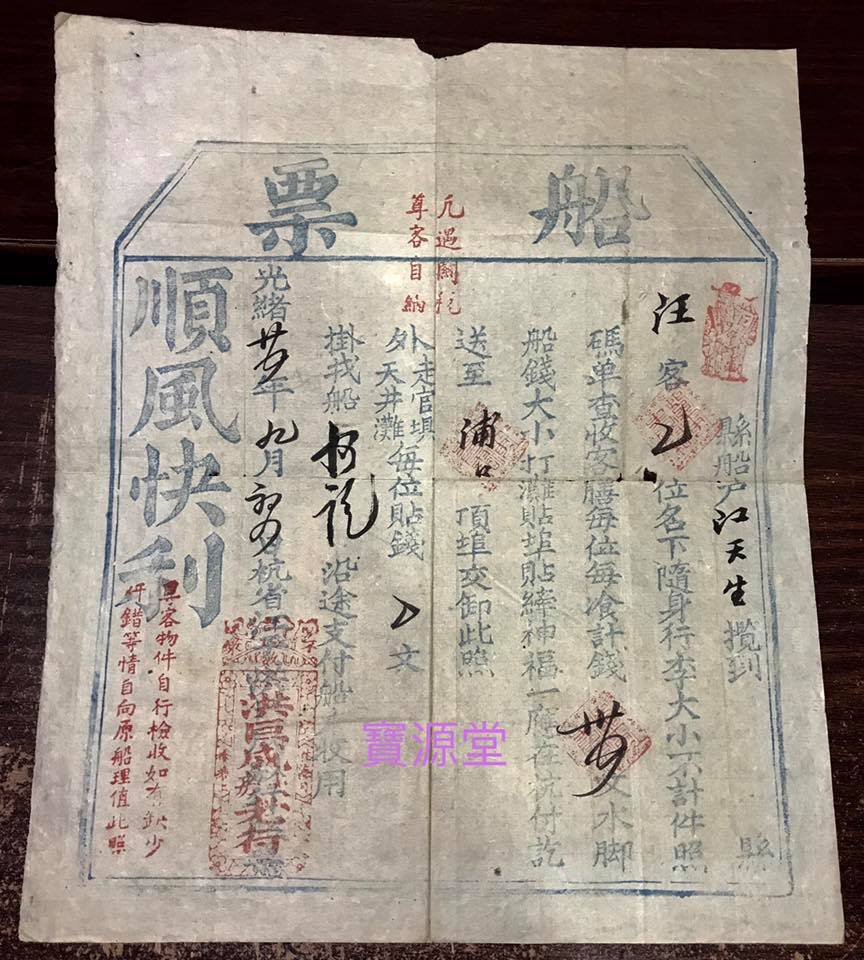 船票
凡遇關訖
尊客自納
縣船戶江天生攬到 縣
汪客 位名下隨身行李大小不計件照
碼单查收客膳每位每飡計錢 文水脚
船錢大小打灘貼埠貼縴神福一應在杭付訖
送至浦口項埠交卸此照
外走官埧天井灘每位貼錢 文
掛找船 沿途支付船 收用
光緒 年九月 杭省
順風快利
尊客物件自行檢收如有缺少
仔錯等情自向原船理值此照
寶源堂